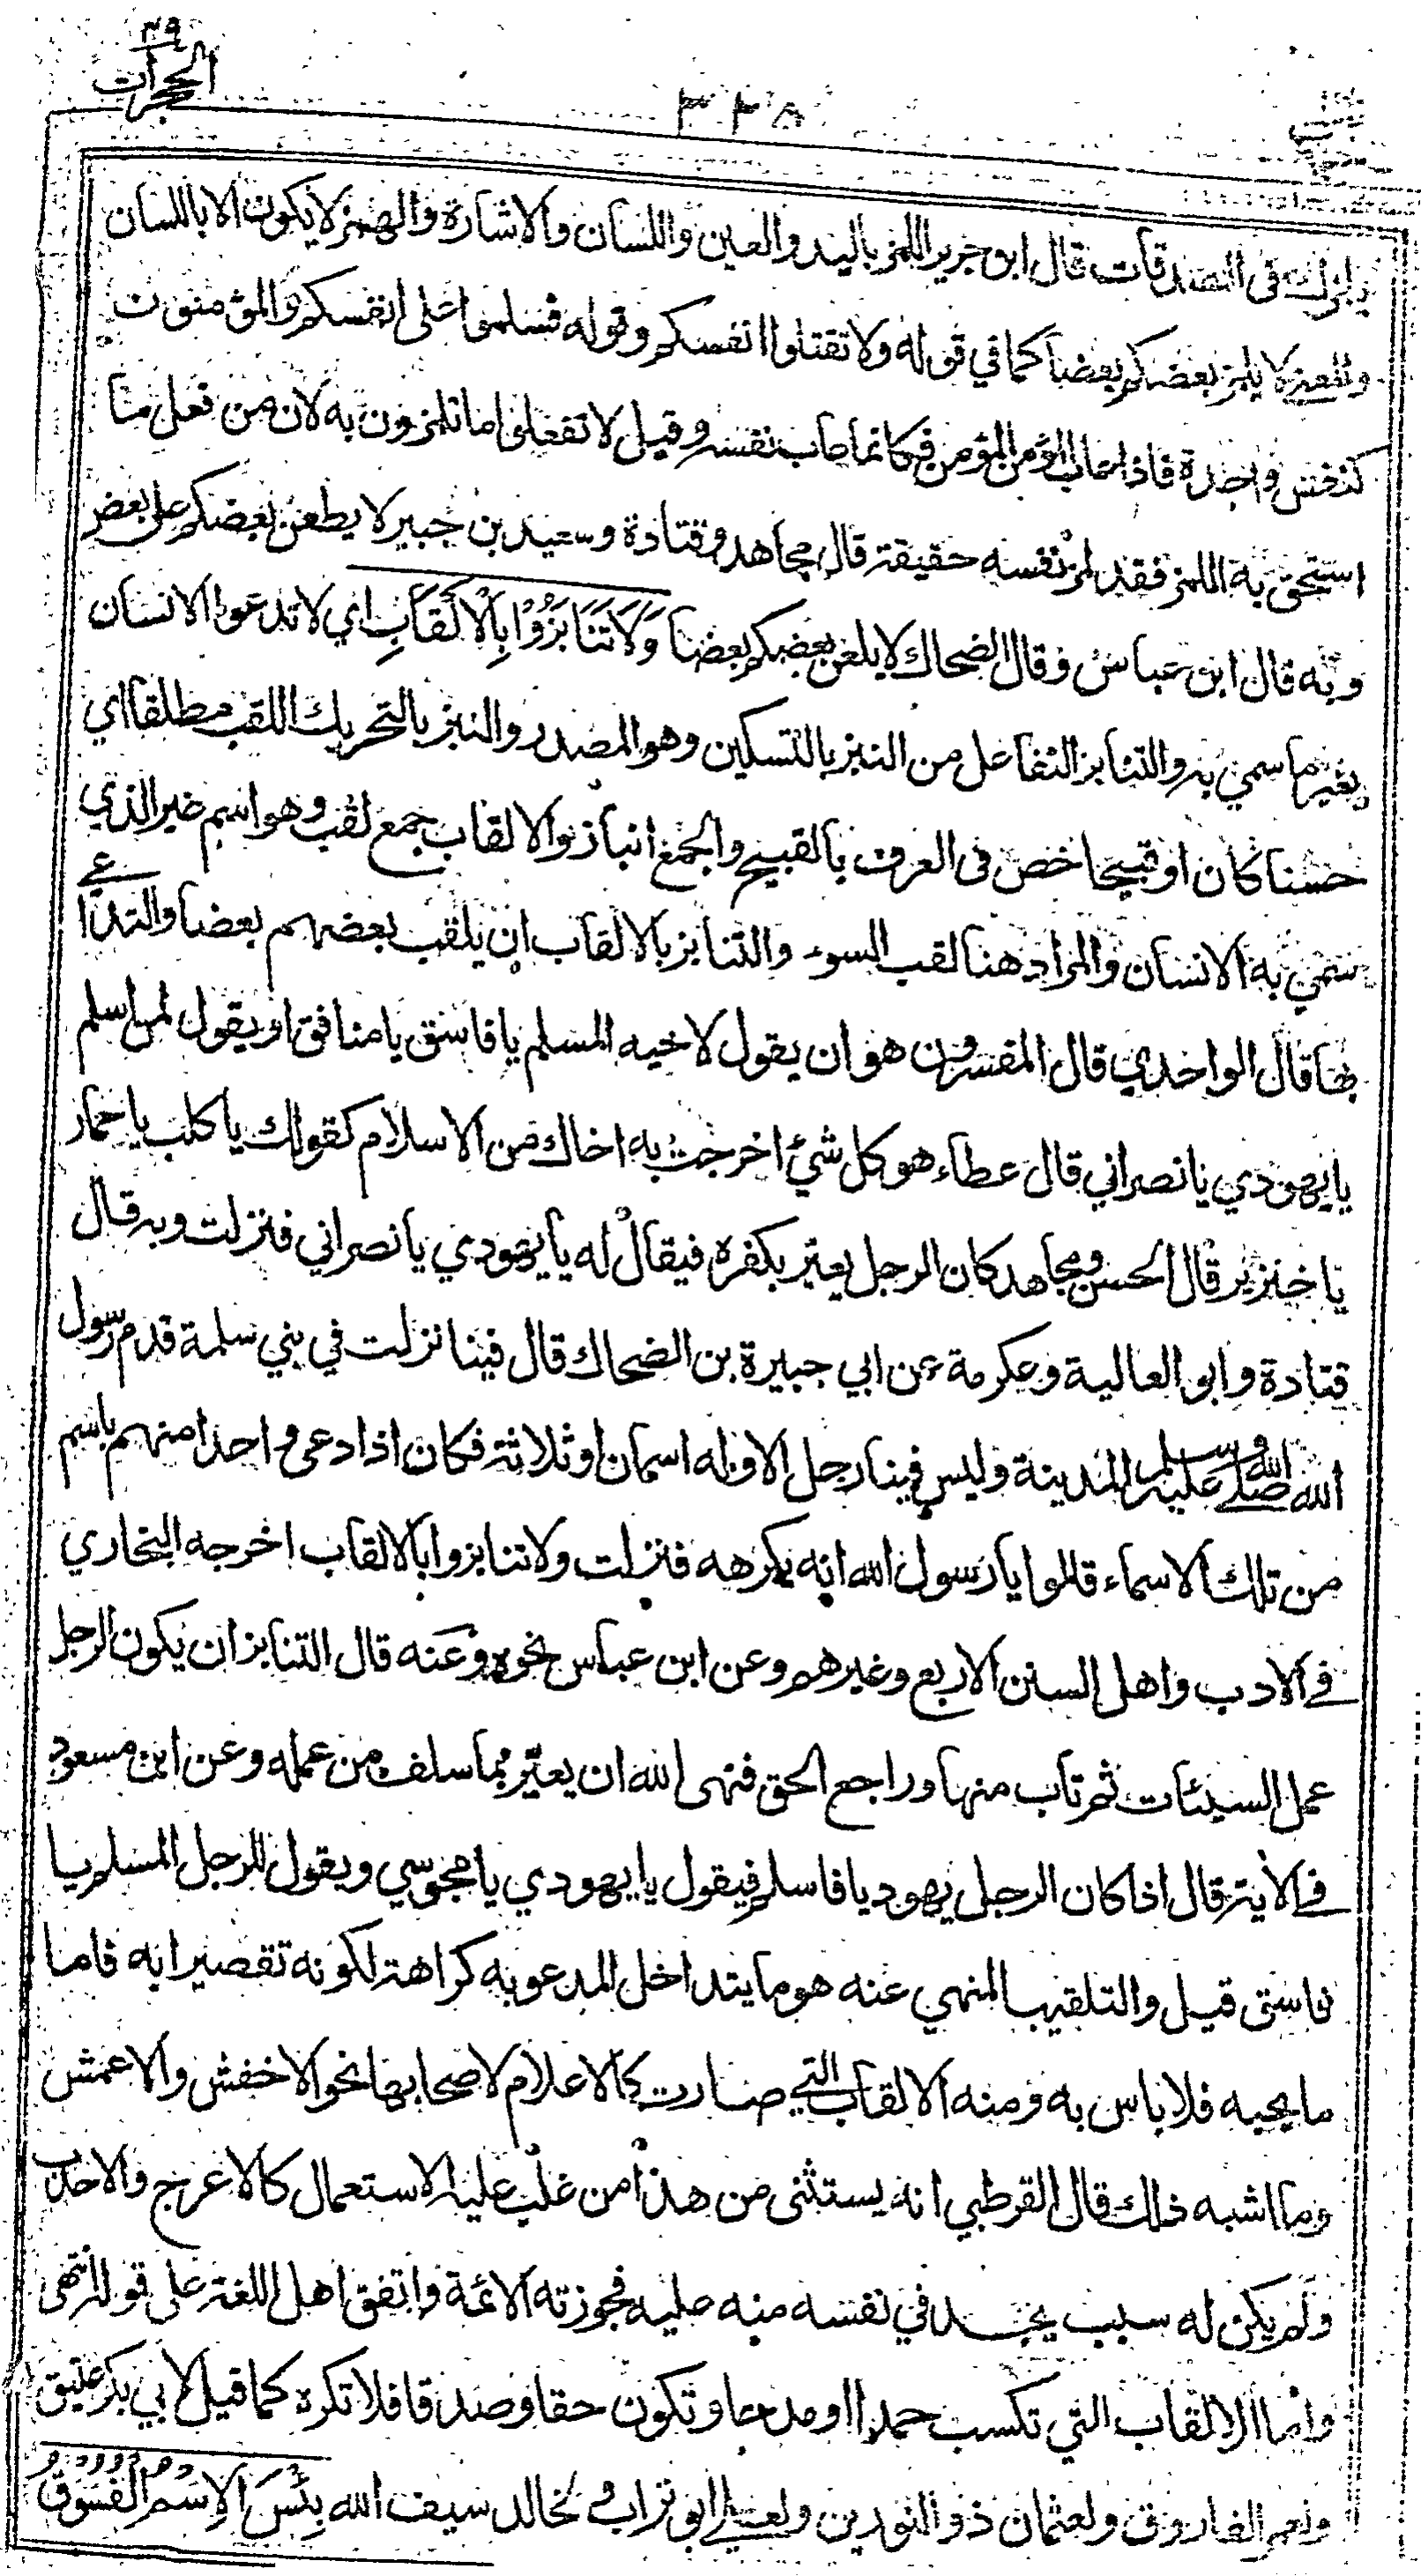 ٤٩
الحجرات
٣٣٨
يلمزك في الصدقات قال ابن جرير اللمز باليد والعين واللسان والاشارة والهمز لا يكون الا باللسان
والمعنى لا يلمز بعضكم بعضا كما في قوله ولا تقتلوا انفسكم وقوله فسلموا على انفسكم والمؤمنون
كنفس واحدة فاذا عاب المؤمن المؤمن فكانما عاب نفسه وقيل لا تفعلوا ما تلمزون به لان من فعل ما
استحق به اللمز فقد لمز نفسه حقيقة قال مجاهد وقتادة وسعيد بن جبير لا يطعن بعضكم على بعض
وبه قال ابن عباس وقال الضحاك لا يلعن بعضكم بعضا وَلَا تَنَابَزُوْا بِالْاَلْقَابِ اي لا تدعوا الانسان
بغير ما سمي به والتنابز التفاعل من النبز بالتسكين وهو المصدر والنبز بالتحريك اللقب مطلقا اي
حسنا كان او قبيحا خص في العرف بالقبيح والجمع انباز والالقاب جمع لقب وهو اسم غير الذي
سمي به الانسان والمراد هنا لقب السوء والتنابز بالالقاب ان يلقب بعضهم بعضا والتداعي
بها قال الواحدي قال المفسرون هو ان يقول لاخيه المسلم يا فاسق يا منافق او يقول لمن اسلم
يا يهودي يا نصراني قال عطاء هو كل شئ اخرجت به اخاك من الاسلام كقولك يا كلب يا حمار
يا خنزير قال الحسن ومجاهد كان الرجل يعير بكفره فيقال له يا يهودي يا نصراني فنزلت وبه قال
قتادة وابو العالية وعكرمة عن ابي جبيرة بن الضحاك قال فينا نزلت في بني سلمة قدم رسول
الله صلى الله عليه وسلم المدينة وليس فينا رجل الا وله اسمان او ثلاثة فكان اذا دعى واحدا منهم باسم
من تلك الاسماء قالوا يا رسول الله انه يكرهه فنزلت ولا تنابزوا بالالقاب اخرجه البخاري
في الادب واهل السنن الاربع وغيرهم وعن ابن عباس نحوه وعنه قال التنابز ان يكون الرجل
عمل السيئات ثم تاب منها وراجع الحق فنهى الله ان يعيّر بما سلف من عمله وعن ابن مسعود
في الاية قال اذا كان الرجل يهوديا فاسلم فيقول يا يهودي يا مجوسي ويقول للرجل المسلم يا
فاسق قيل والتلقيب المنهي عنه هو ما يتداخل المدعو به كراهة لكونه تقصيرا به فاما
ما يحبه فلا باس به ومنه الالقاب التي صارت كالاعلام لاصحابها نحو الاخفش والاعمش
وما اشبه ذلك قال القرطبي انه يستثنى من هذا من غلب عليه الاستعمال كالاعرج والاحدب
ولم يكن له سبب يجد في نفسه منه عليه فجوزته الائمة واتفق اهل اللغة على قوله انتهى
واما الالقاب التي تكسب حمدا او مدحا وتكون حقا وصدقا فلا تكره كما قيل لابي بكر عتيق
ولعمر الفاروق ولعثمان ذو النورين ولعلي ابو تراب ولخالد سيف الله بِئْسَ الِاسْمُ الْفُسُوْقُ